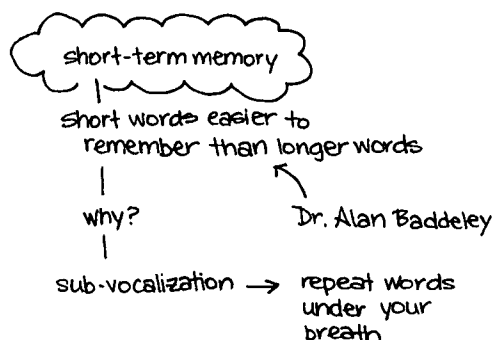 short-term memory
short words easier to
remember than longer words
why?
Dr. Alan Baddeley
sub-vocalization → repeat words
under your
breath